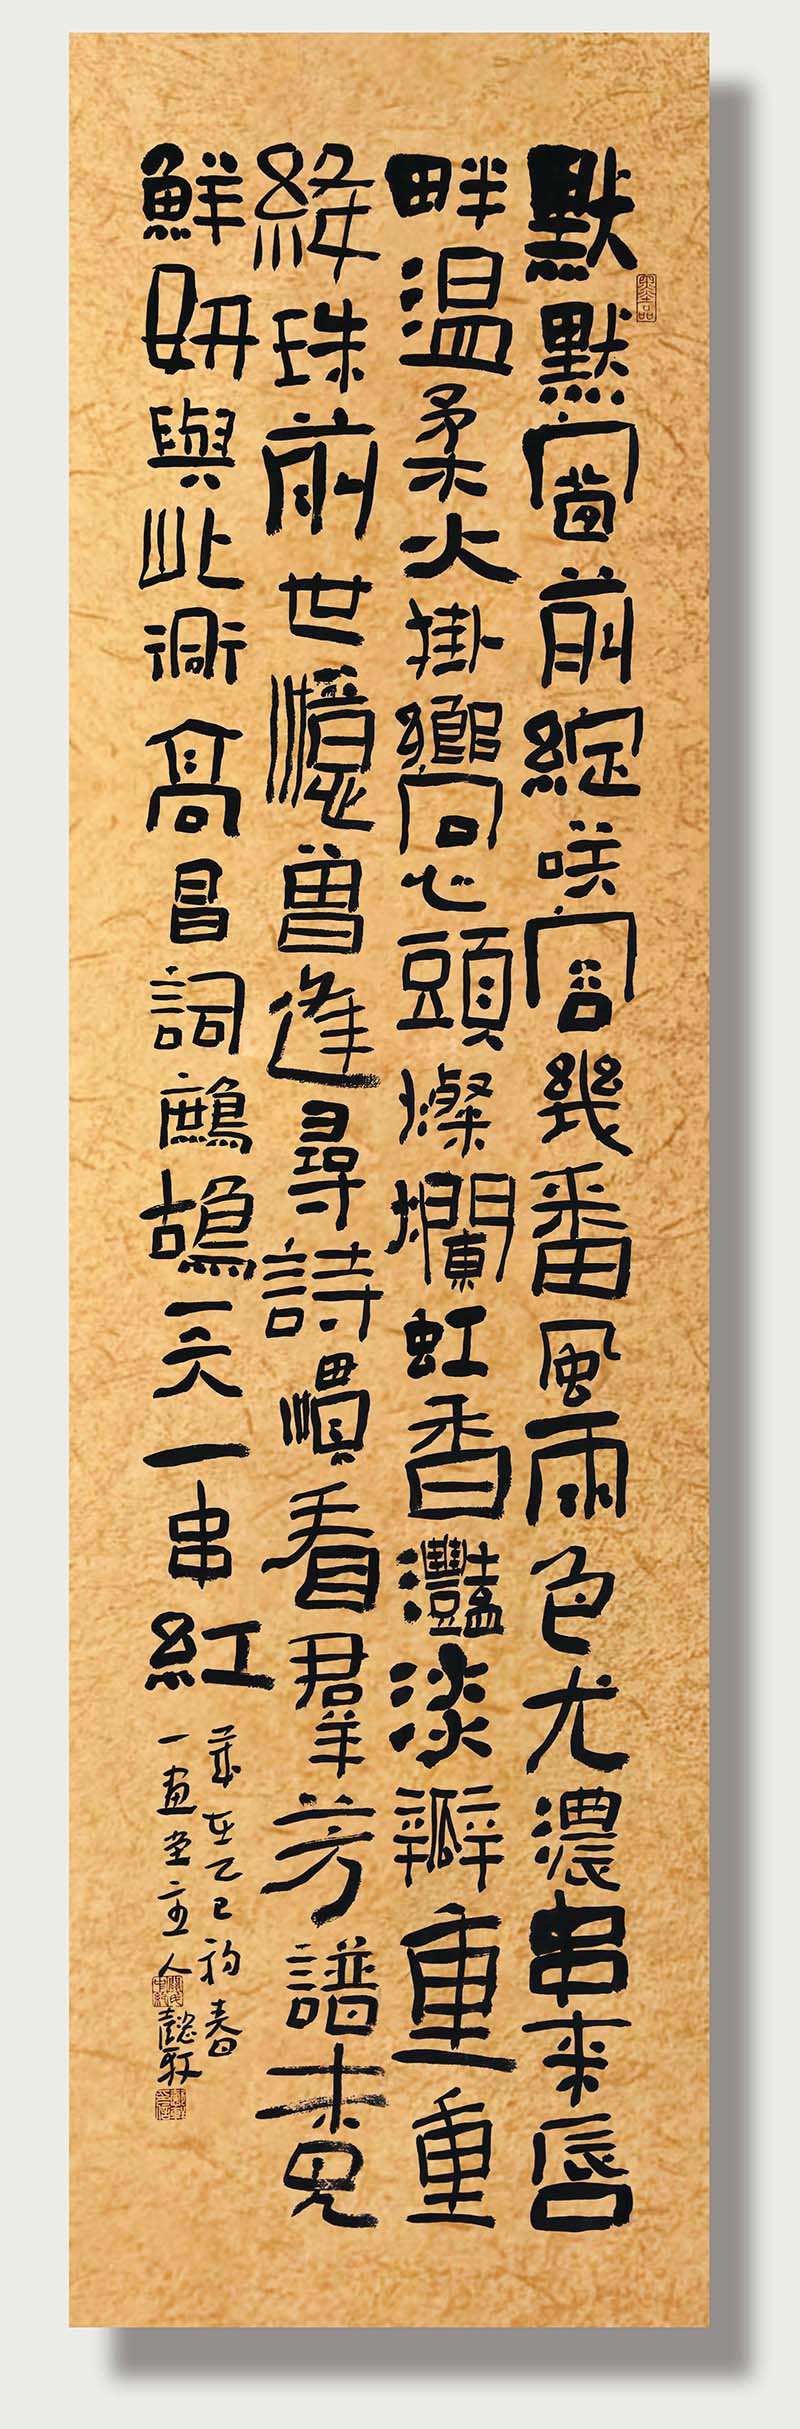 默默窗前綻咲容幾番風雨色尤濃串來唇
畔温柔火掛嚮心頭燦爛虹香灩淡瓣重重
絳珠前世憶曾逢尋詩慣看羣芳譜未見
鮮妍與此衕高昌詞鷓鴣天一串紅
歲在乙巳初春
一畫堂主人